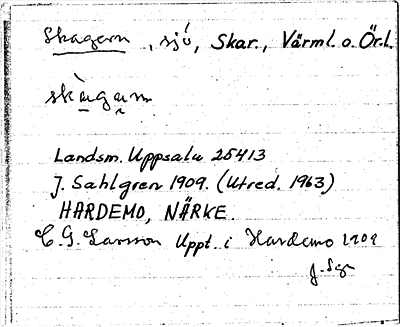 Skagern, sjö, Skar., Värml. o. Ör.l.
skàgarn
Landsm. Uppsala 25413
J. Sahlgren 1909. (Utred. 1963)
HARDEMO, NÄRKE.
C. G. Larsson Uppt. i Hardemo 1909
J. Sgr